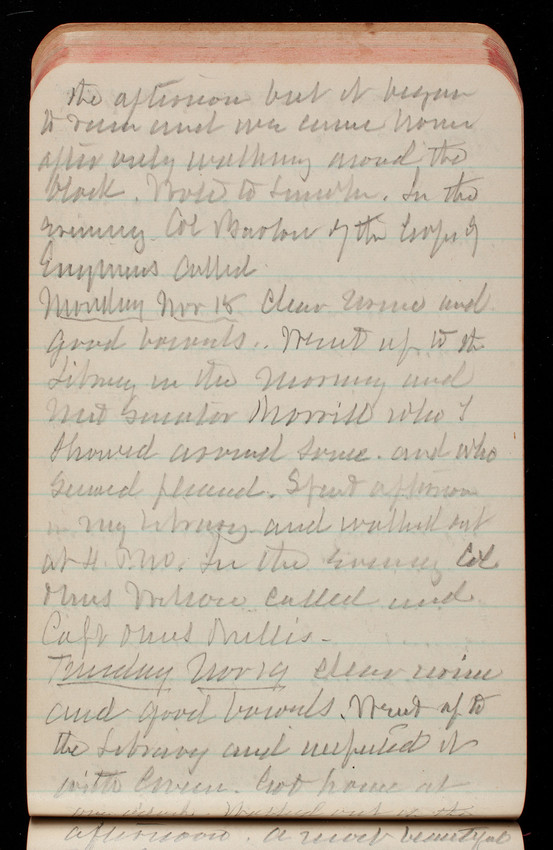 the afternoon but it began
to rain and we came home
after only walking around the
block. Wrote to Lincoln. In the
evening Col Barlow of the Corps of
Engineers called
Monday Nov 18 clear urine and
good bowels.. Went up to the
Library in the morning and
met Senator Morrill who I
showed around some. and who
seemed pleased. Spent afternoon
in my library and walked out
at 4. P.M. In the evening Col
& Mrs Wilson called and
Capt & Mrs
Tuesday Nov 19 clear urine
and good bowels. Went up to
the Library and inspected it
with Green. Got home at
Walked out in the
afternoon. a most beautiful